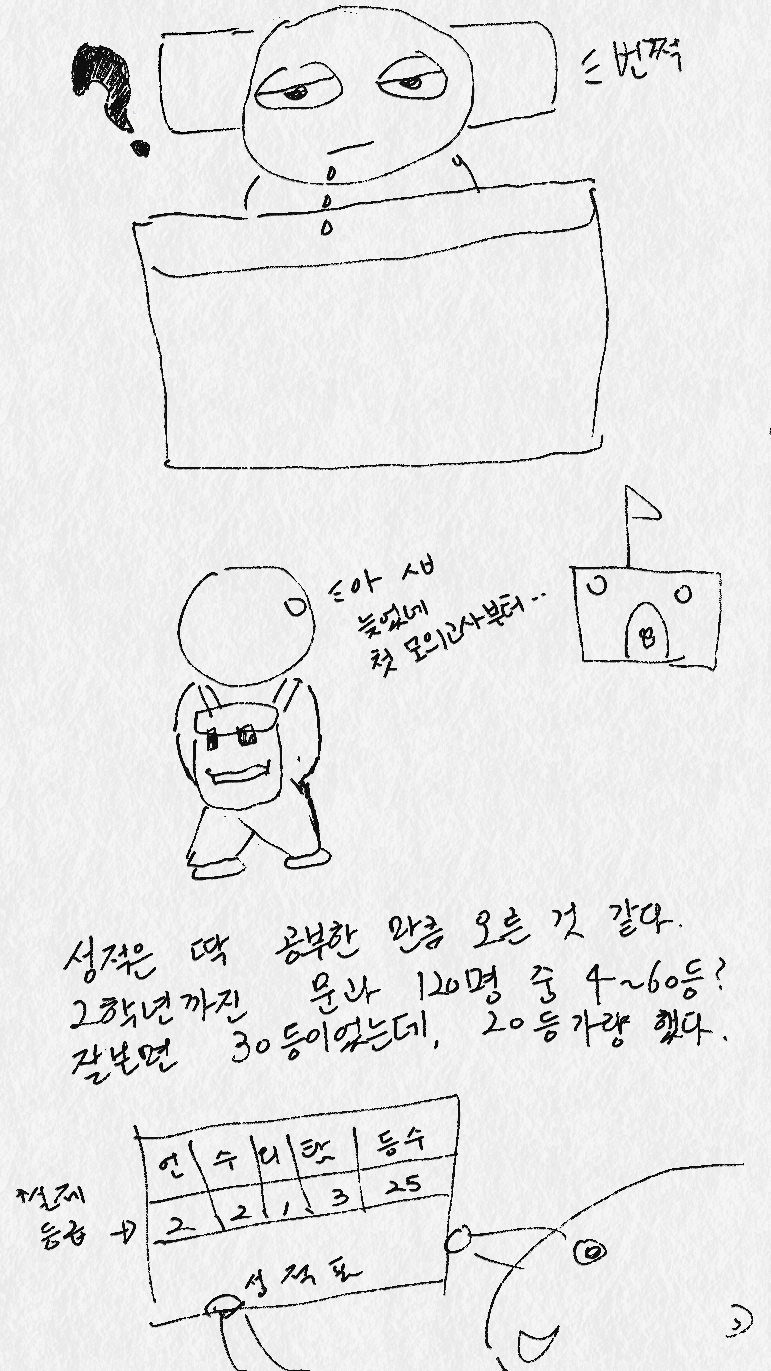 번쩍
아 시바
늦었네
첫 모의고사부터..
성적은 딱 공부한 만큼 오른 것 같다.
2학년까진 문과 120명 중 4~60등?
잘보면 30등이었는데, 20등가량 했다.
언 수 외 탐 등수
실제
등급 → 2 2 1 3 25
성적표